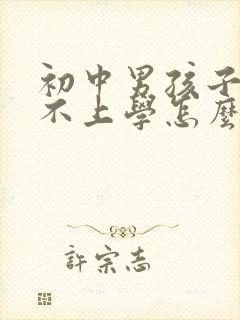 初中男孩子
不上學怎麽
許宗志